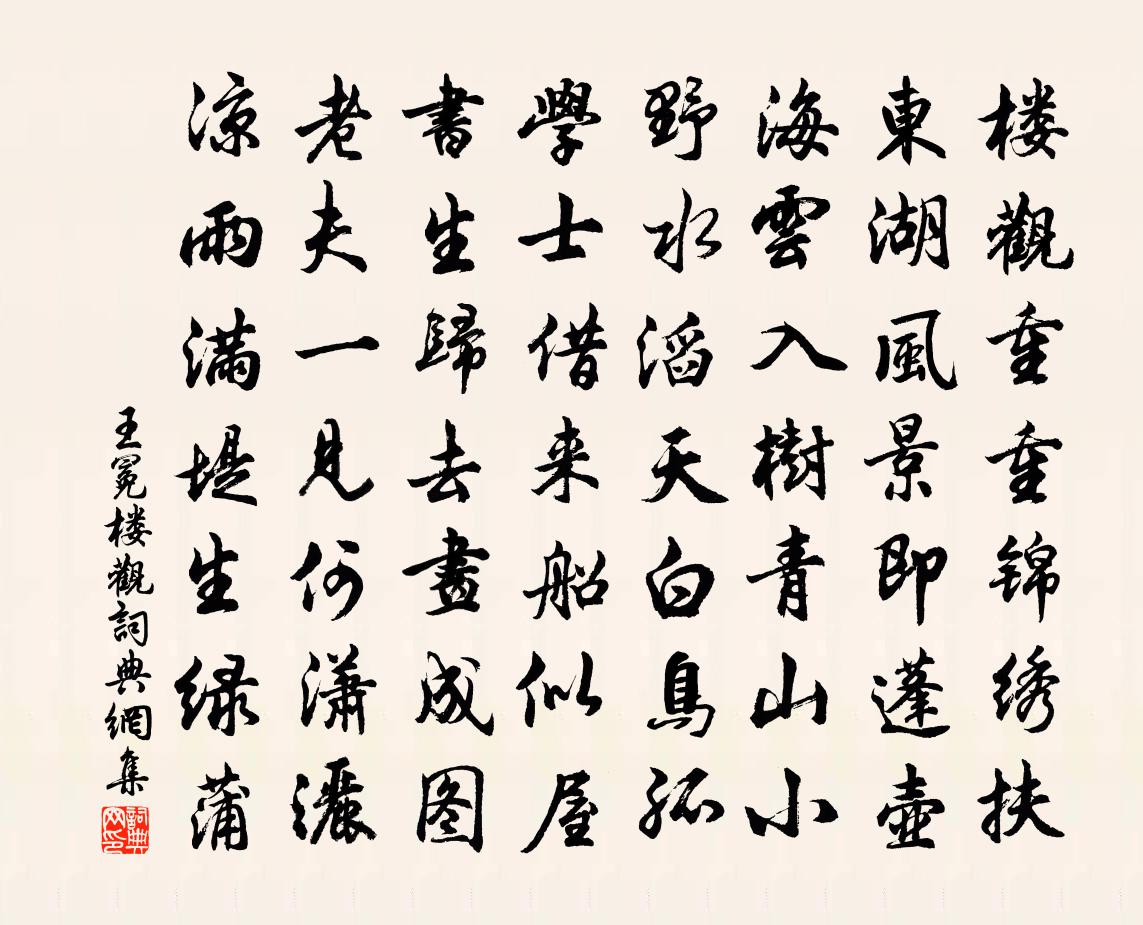 楼觀重重锦绣扶
東湖風景即蓬壺
海雲入樹青山小
野水滔天白鳥孤
學士借来船似屋
書生歸去畫成图
老夫一見何瀟灑
凉雨满堤生绿蒲
王冕楼觀詞典網集
詞典网印